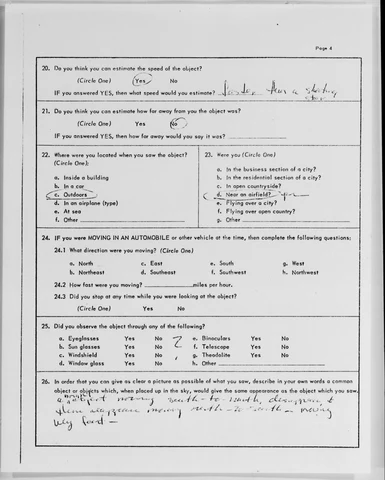 Page 4
20. Do you think you can estimate the speed of the object?
(Circle One) Yes No
IF you answered YES, then what speed would you estimate? than a shooting star
21. Do you think you can estimate how far away from you the object was?
(Circle One) Yes No
IF you answered YES, then how far away would you say it was?
22. Where were you located when you saw the object?
(Circle One):
a. Inside a building
b. In a car
c. Outdoors
d. In an airplane (type)
e. At sea
f. Other
23. Were you (Circle One)
a. In the business section of a city?
b. In the residential section of a city?
c. In open countryside?
d. Near an airfield?
e. Flying over a city?
f. Flying over open country?
g. Other
24. IF you were MOVING IN AN AUTOMOBILE or other vehicle at the time, then complete the following questions:
24.1 What direction were you moving? (Circle One)
a. North c. East e. South g. West
b. Northeast d. Southeast f. Southwest h. Northwest
24.2 How fast were you moving? miles per hour.
24.3 Did you stop at any time while you were looking at the object?
(Circle One) Yes No
25. Did you observe the object through any of the following?
a. Eyeglasses Yes No e. Binoculars Yes No
b. Sun glasses Yes No f. Telescope Yes No
c. Windshield Yes No g. Theodolite Yes No
d. Window glass Yes No h. Other
26. In order that you can give as clear a picture as possible of what you saw, describe in your own words a common
object or objects which, when placed up in the sky, would give the same appearance as the object which you saw.
a bright object moving south-to-north, disappear &
then reappear moving north-to-south - moving
very fast -